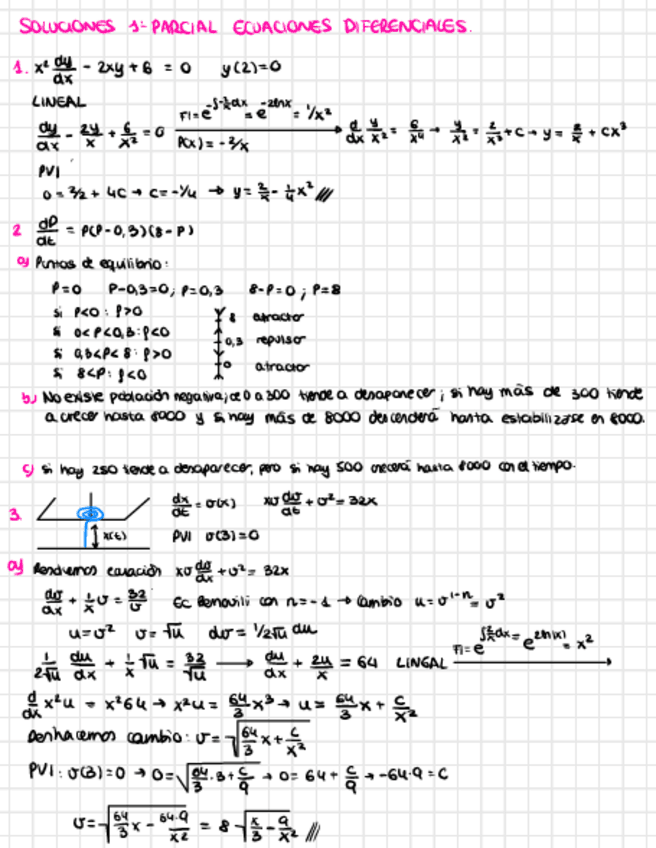 SOLUCIONES 1º PARCIAL ECUACIONES DIFERENCIALES.
1. x² dy/dx - 2xy + 6 = 0 y(2)=0
LINEAL
dy/dx - 2y/x + 6/x² = 0 FI = e^∫-2/x dx = e^-2lnx = 1/x² P(x) = -2/x d/dx y/x² = 6/x⁴ → y/x² = 2/x³ + C → y = 2/x + Cx²
PVI
0 = 2/2 + 4C → C = -1/4 → y = 2/x - 1/4 x² ///
2 dP/dt = P(P-0,3)(8-P)
a) Puntos de equilibrio:
P=0 P-0,3=0; P=0,3 8-P=0; P=8
si P<0: P>0
si 0<P<0,3: P<0
si 0,3<P<8: P>0
si 8<P: P<0
8 atractor
0,3 repulsor
0 atractor
b) No existe población negativa; de 0 a 300 tiende a desaparecer; si hay más de 300 tiende
a crecer hasta 8000 y si hay más de 8000 descenderá hasta estabilizase en 8000.
c) si hay 250 tiende a desaparecer, pero si hay 500 crecerá hasta 8000 con el tiempo.
3. x(t) dx/dt = v(x) xv dv/dt + v² = 32x
PVI v(3)=0
a) Resolvemos ecuación xv dv/dx + v² = 32x
dv/dx + 1/x v = 32/v Ec Bernouilli con n=-1 → Cambio u = v^1-n = v²
u=v² v=√u dv = 1/2√u du
1/2√u du/dx + 1/x √u = 32/√u → du/dx + 2u/x = 64 LINEAL FI = e^∫2/x dx = e^2ln|x| = x²
d/dx x²u = x²64 → x²u = 64/3 x³ → u = 64/3 x + C/x²
Deshacemos cambio: v = √(64/3 x + C/x²)
PVI: v(3)=0 → 0 = √(64/3 · 3 + C/9) → 0 = 64 + C/9 → -64·9 = C
v = √(64/3 x - 64·9/x²) = 8 √(x/3 - 9/x²) ///